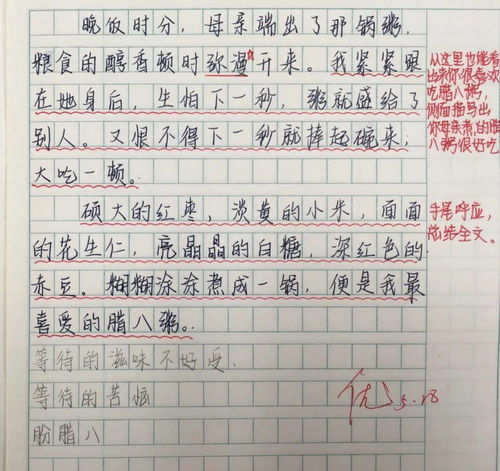 晚饭时分，母亲端出了那锅粥，
粮食的醇香顿时弥漫开来。我紧紧跟
在她身后，生怕下一秒，粥就盛给了
别人。又恨不得下一秒就捧起碗来，
大吃一顿。
硕大的红枣，淡黄的小米，面面
的花生仁，亮晶晶的白糖，深红色的
赤豆。糊糊涂涂煮成一锅，便是我最
喜爱的腊八粥。
等待的滋味不好受.
等待的苦恼
盼腊八
从这里也能看
出来你很喜欢
吃腊八粥，
侧面描写出
你母亲煮的腊
八粥很好吃
首尾呼应，
总结全文。
优 5.28